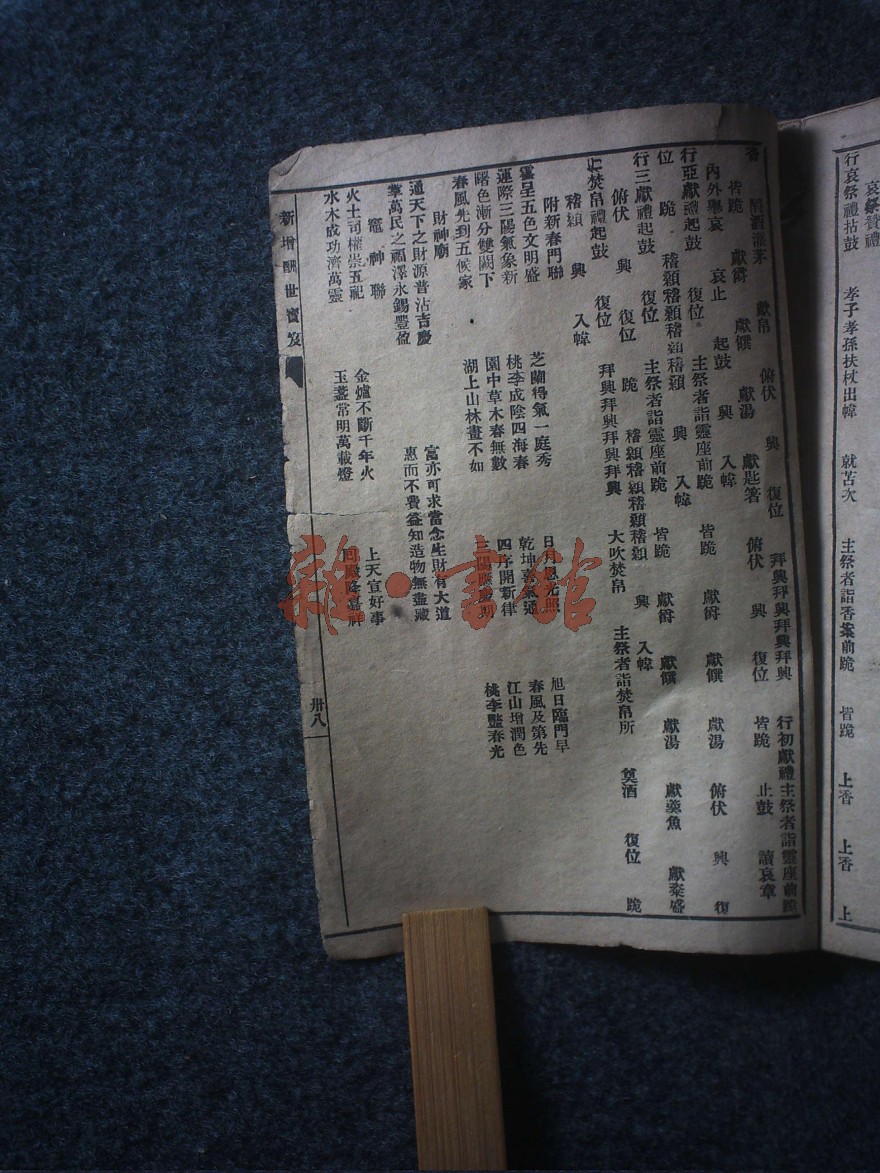 哀祭贊禮
行哀祭禮拈鼓 孝子孝孫扶杖出幃 就苫次 主祭者詣香案前跪 皆跪 上香 上香 上
香 酹酒灌茅 獻帛 俯伏 興 復位 拜興拜興拜興拜興 行初獻禮主祭者詣靈座前跪
皆跪 獻爵 獻饌 獻湯 獻匙箸 俯伏 興 復位 皆跪 止鼓 讀哀章
內外舉哀 哀止 起鼓 興 入幃
行亞獻禮起鼓 復位 主祭者詣靈座前跪 皆跪 獻爵 獻饌 獻湯 俯伏 興 復
位 跪 稽顙稽顙稽顙稽顙 興 入幃
行三獻禮起鼓 復位 主祭者詣靈座前跪 皆跪 獻爵 獻饌 獻湯 獻羹魚 獻粢盛
俯伏 興 復位 跪 稽顙稽顙稽顙稽顙 興 入幃
焚帛禮起鼓 復位 拜興拜興拜興拜興 大吹焚帛 主祭者詣焚帛所 奠酒 復位 跪
稽顙 興 入幃
附新春門聯
靄呈五色文明盛 芝蘭得氣一庭秀 日月恩光照 旭日臨門早
運際三陽氣象新 桃李成陰四海春 乾坤喜氣通 春風及第先
曙色漸分雙闕下 園中草木春無數 四序開新律 江山增潤色
春風先到五候家 湖上山林畫不如 三陽應慶期 桃李豔春光
財神廟
通天下之財源普沾吉慶 富亦可求當念生財有大道
掌萬民之福澤永錫豐盈 惠而不費益知造物無盡藏
竈神聯
火土司權崇五祀 金爐不斷千年火 上天宣好事
水木成功濟萬靈 玉盞常明萬載燈 回殿降嘉祥
新增酬世寶笈 卅八
雜·書館